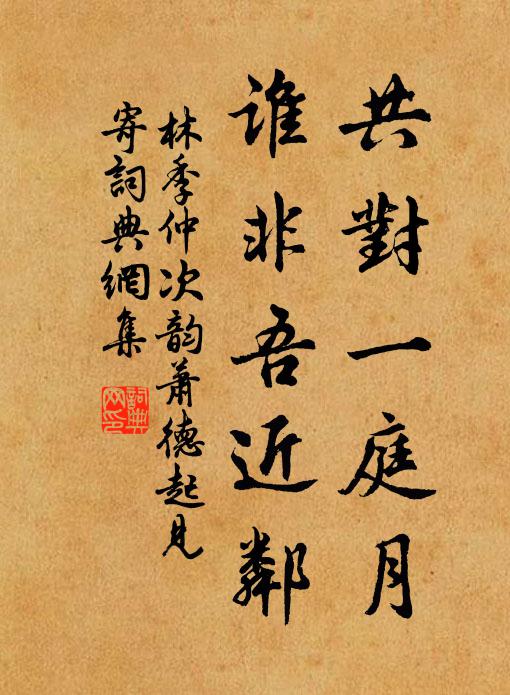 共對一庭月
誰非吾近鄰
林季仲次韵蕭德起見
寄詞典網集
詞典
网印